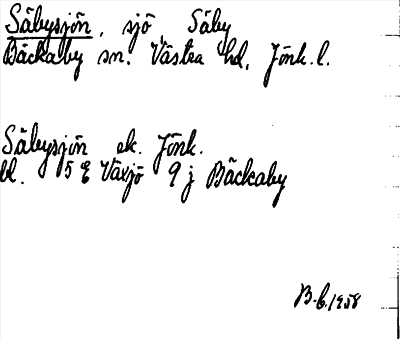 Säbysjön, sjö, Säby
Bäckaby sn. Västra hd, Jönk. l.
Säbysjön ek. Jönk.
bl. 5 E Växjö 9 j Bäckaby
B. b. 1958